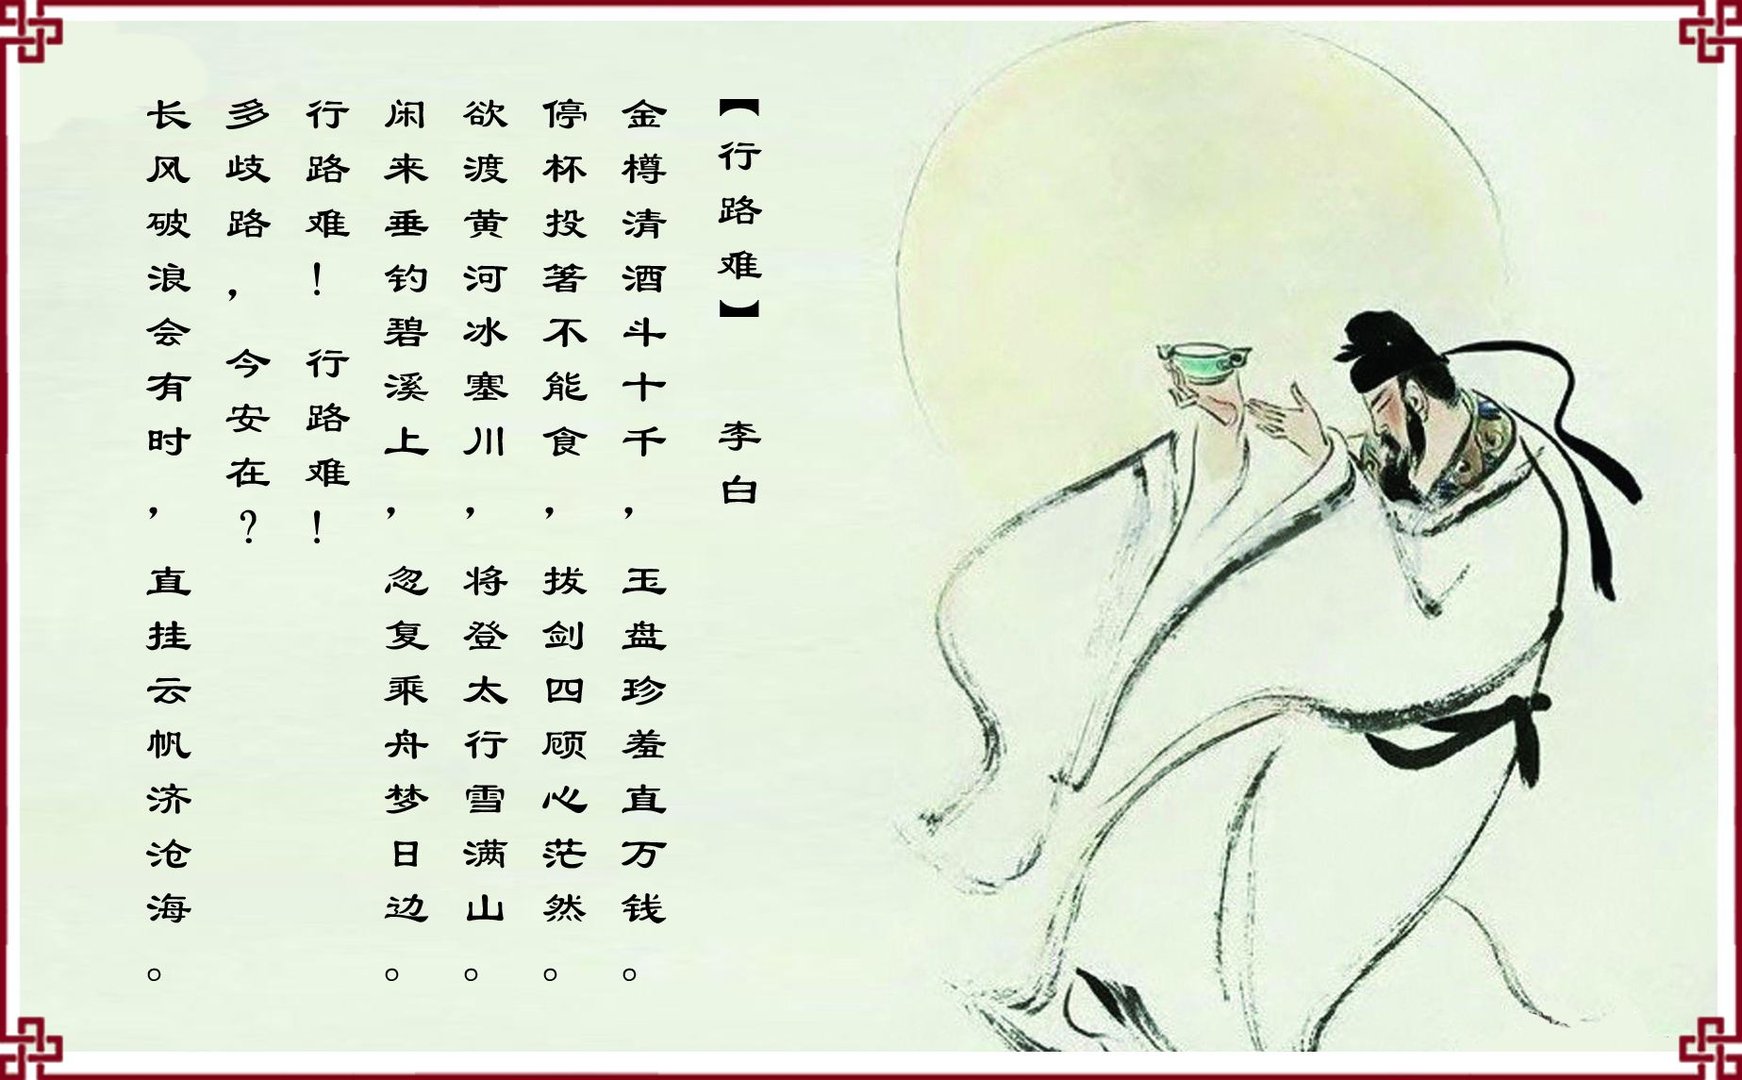 【行路难】 李白
金樽清酒斗十千，玉盘珍羞直万钱。
停杯投箸不能食，拔剑四顾心茫然。
欲渡黄河冰塞川，将登太行雪满山。
闲来垂钓碧溪上，忽复乘舟梦日边。
行路难！行路难！
多歧路，今安在？
长风破浪会有时，直挂云帆济沧海。